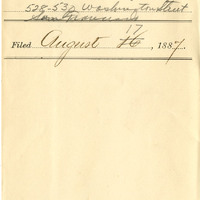 528-532 Washington Street
San Francisco
17
Filed August 16, 1887.